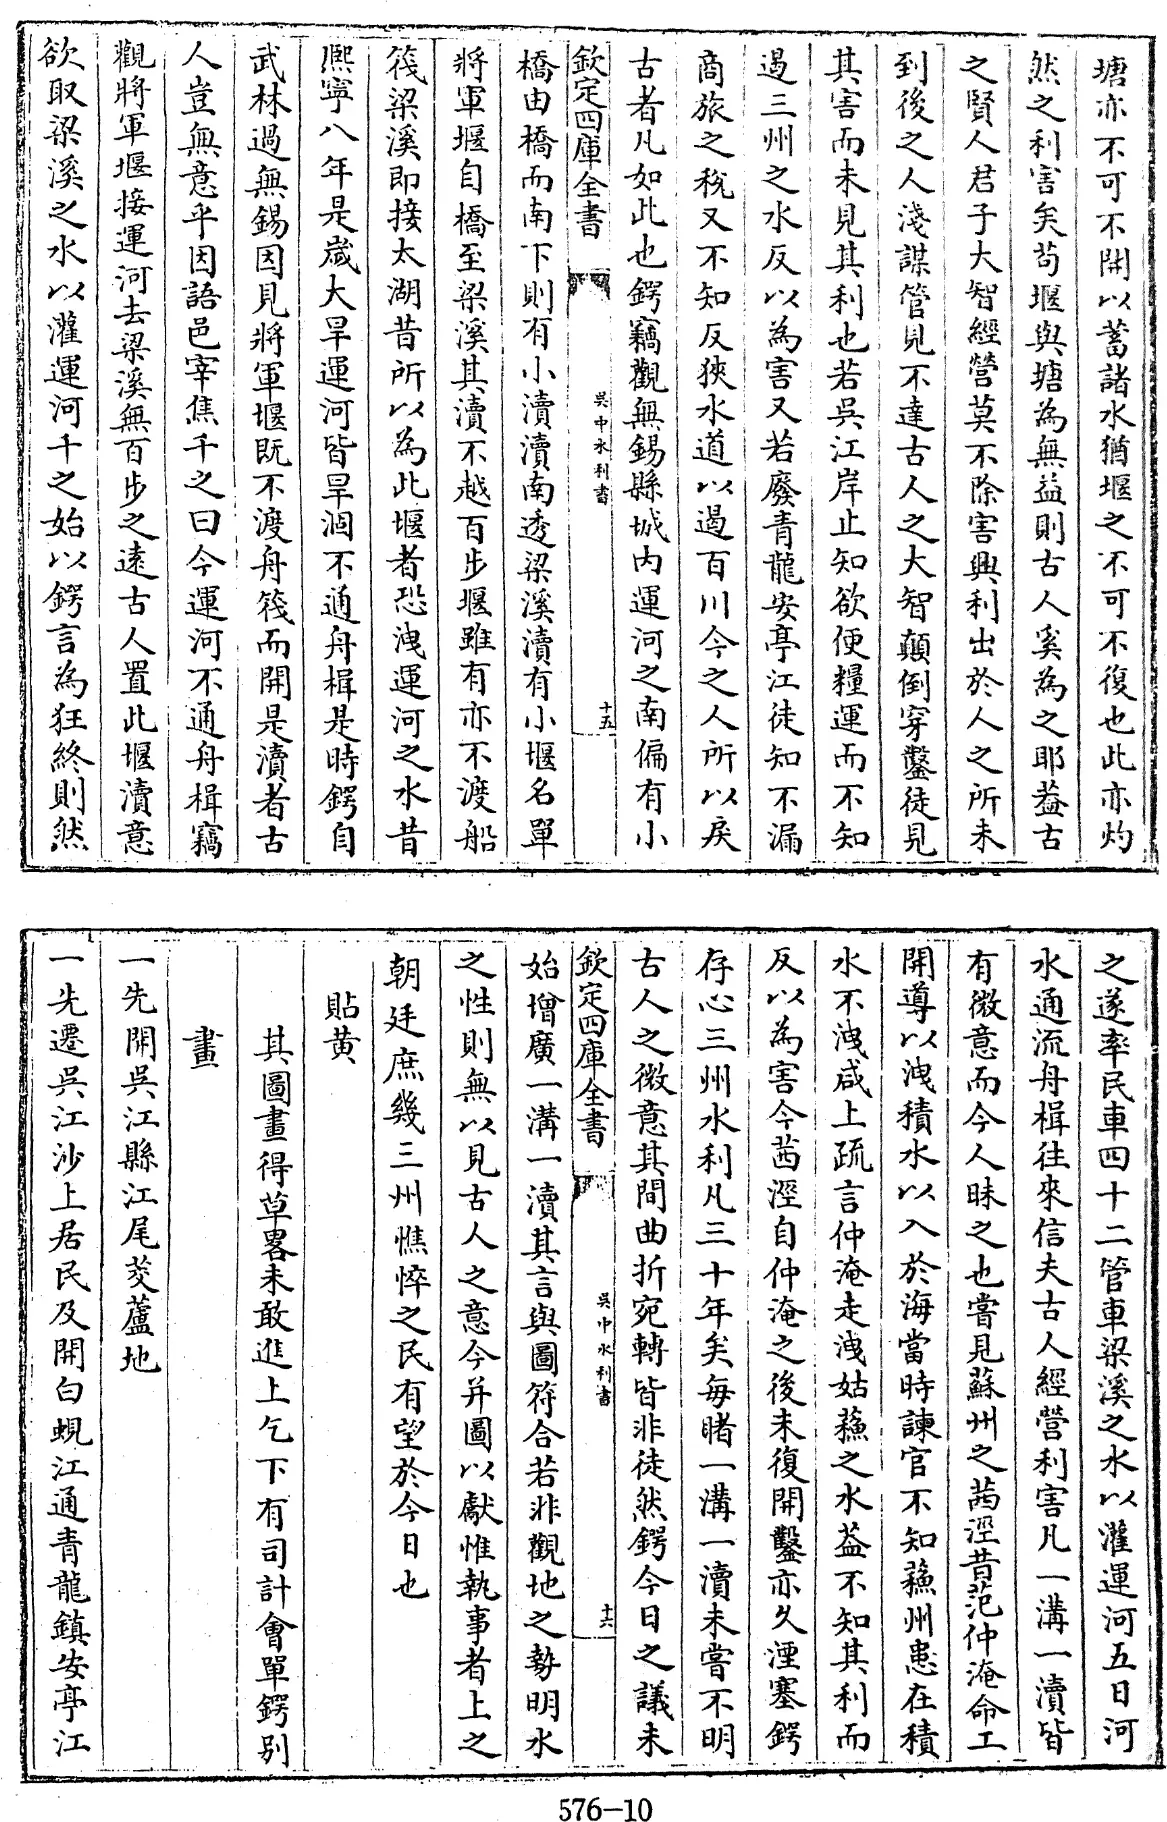 塘亦不可不開以蓄諸水猶堰之不可不復也此亦灼
然之利害矣苟堰與塘為無益則古人奚為之耶葢古
之賢人君子大智經營莫不除害興利出於人之所未
到後之人淺謀管見不達古人之大智顛倒穿鑿徒見
其害而未見其利也若吳江岸止知欲便糧運而不知
遏三州之水反以為害又若廢青龍安亭江徒知不漏
商旅之稅又不知反狹水道以遏百川今之人所以戾
古者凡如此也鍔竊觀無錫縣城内運河之南偏有小
欽定四庫全書
吳中水利書
十五
橋由橋而南下則有小瀆瀆南透梁溪瀆有小堰名單
將軍堰自橋至梁溪其瀆不越百步堰雖有亦不渡船
筏梁溪即接太湖昔所以為此堰者恐洩運河之水昔
熈寧八年是歲大旱運河皆旱涸不通舟楫是時鍔自
武林過無錫因見將軍堰既不渡舟筏而開是瀆者古
人豈無意乎因語邑宰焦千之曰今運河不通舟楫竊
觀將軍堰接運河去梁溪無百步之遠古人置此堰瀆意
欲取梁溪之水以灌運河千之始以鍔言為狂終則然
之遂率民車四十二管車梁溪之水以灌運河五日河
水通流舟楫往來信夫古人經營利害凡一溝一瀆皆
有微意而今人昧之也嘗見蘇州之茜涇昔范仲淹命工
開導以洩積水以入於海當時諫官不知蘓州患在積
水不洩咸上疏言仲淹走洩姑蘓之水葢不知其利而
反以為害今茜涇自仲淹之後未復開鑿亦久湮塞鍔
存心三州水利凡三十年矣每睹一溝一瀆未嘗不明
古人之微意其間曲折宛轉皆非徒然鍔今日之議未
欽定四庫全書
吳中水利書
十六
始增廣一溝一瀆其言與圖符合若非觀地之勢明水
之性則無以見古人之意今并圖以獻惟執事者上之
朝廷庶幾三州憔悴之民有望於今日也
貼黄
其圖畫得草畧未敢進上乞下有司計會單鍔别
畫
一先開吳江縣江尾茭蘆地
一先遷吳江沙上居民及開白蜆江通青龍鎮安亭江
576-10